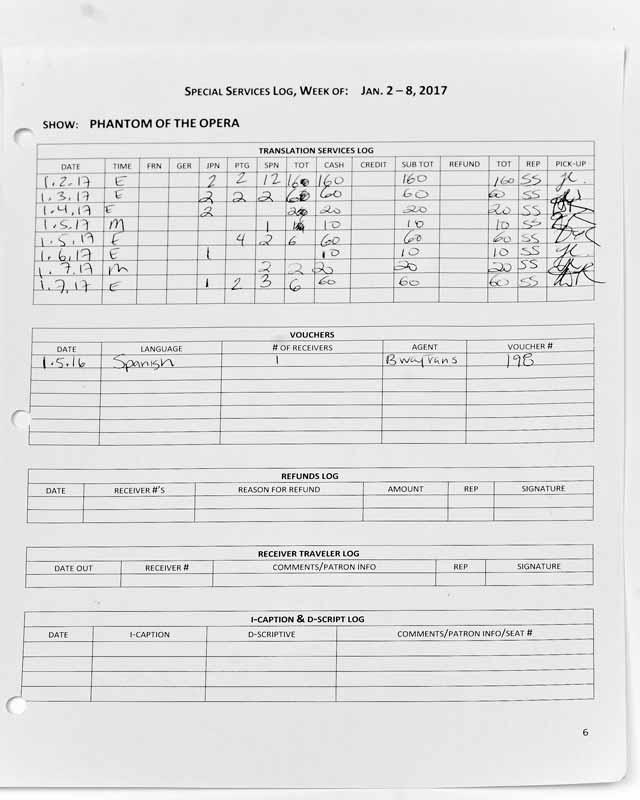 SPECIAL SERVICES LOG, WEEK OF: JAN. 2 – 8, 2017
SHOW: PHANTOM OF THE OPERA
TRANSLATION SERVICES LOG
DATE TIME FRN GER JPN PTG SPN TOT CASH CREDIT SUB TOT REFUND TOT REP PICK-UP
1.2.17 E 2 2 12 16 160 160 160 SS
1.3.17 E 2 2 2 6 60 60 60 SS
1.4.17 E 2 20 20 20 SS
1.5.17 M 1 10 10 10 SS
1.5.17 E 4 2 6 60 60 60 SS
1.6.17 E 1 10 10 10 SS
1.7.17 M 2 2 20 20 20 SS
1.7.17 E 1 2 3 6 60 60 60 SS
VOUCHERS
DATE LANGUAGE # OF RECEIVERS AGENT VOUCHER #
1.5.16 Spanish 1 BwayTrans
REFUNDS LOG
DATE RECEIVER #'S REASON FOR REFUND AMOUNT REP SIGNATURE
RECEIVER TRAVELER LOG
DATE OUT RECEIVER # COMMENTS/PATRON INFO REP SIGNATURE
I-CAPTION & D-SCRIPT LOG
DATE I-CAPTION D-SCRIPTIVE COMMENTS/PATRON INFO/SEAT #
6